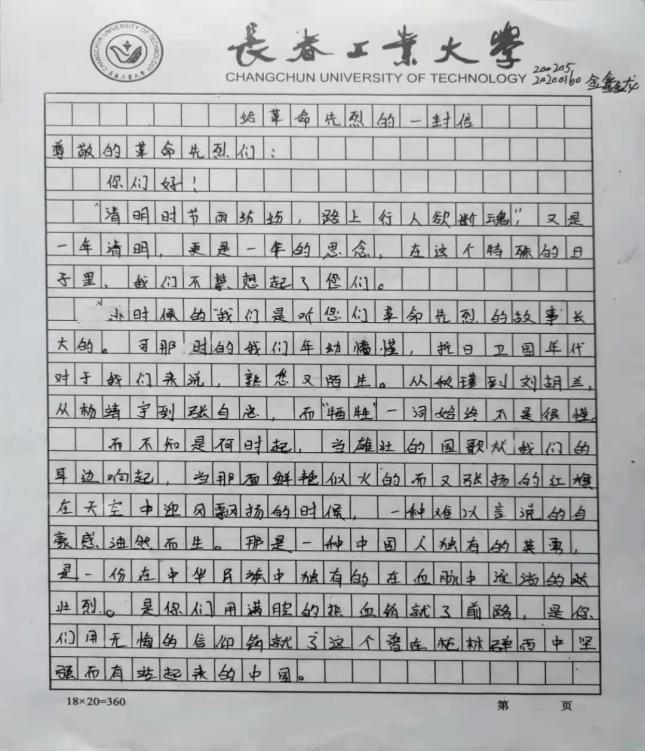 CHANGCHUN UNIVERSITY OF TECHNOLOGY
长春工业大学
長春工業大學
CHANGCHUN UNIVERSITY OF TECHNOLOGY
200205
20200160 金鑫龙
给革命先烈的一封信
尊敬的革命先烈们：
你们好！
“清明时节雨纷纷，路上行人欲断魂”，又是
一年清明，更是一年的思念，在这个特殊的日
子里，我们不禁想起了您们。
小时候的我们是听您们革命先烈的故事长
大的。可那时的我们年幼懵懂，抗日卫国年代
对于我们来说，熟悉又陌生。从秋瑾到刘胡兰，
从杨靖宇到张自忠，而“牺牲”一词始终不是很懂。
而不知是何时起，当雄壮的国歌从我们的
耳边响起，当那面鲜艳似火的而又张扬的红旗
在天空中迎风飘扬的时候，一种难以言说的自
豪感油然而生。那是一种中国人独有的英勇，
是一份在中华民族中独有的在血脉中流淌的
壮烈。是你们用满腔的热血铸就了前路，是你
们用无悔的信仰铸就了这个曾在枪林弹雨中坚
强而有站起来的中国。
18×20=360
第 页